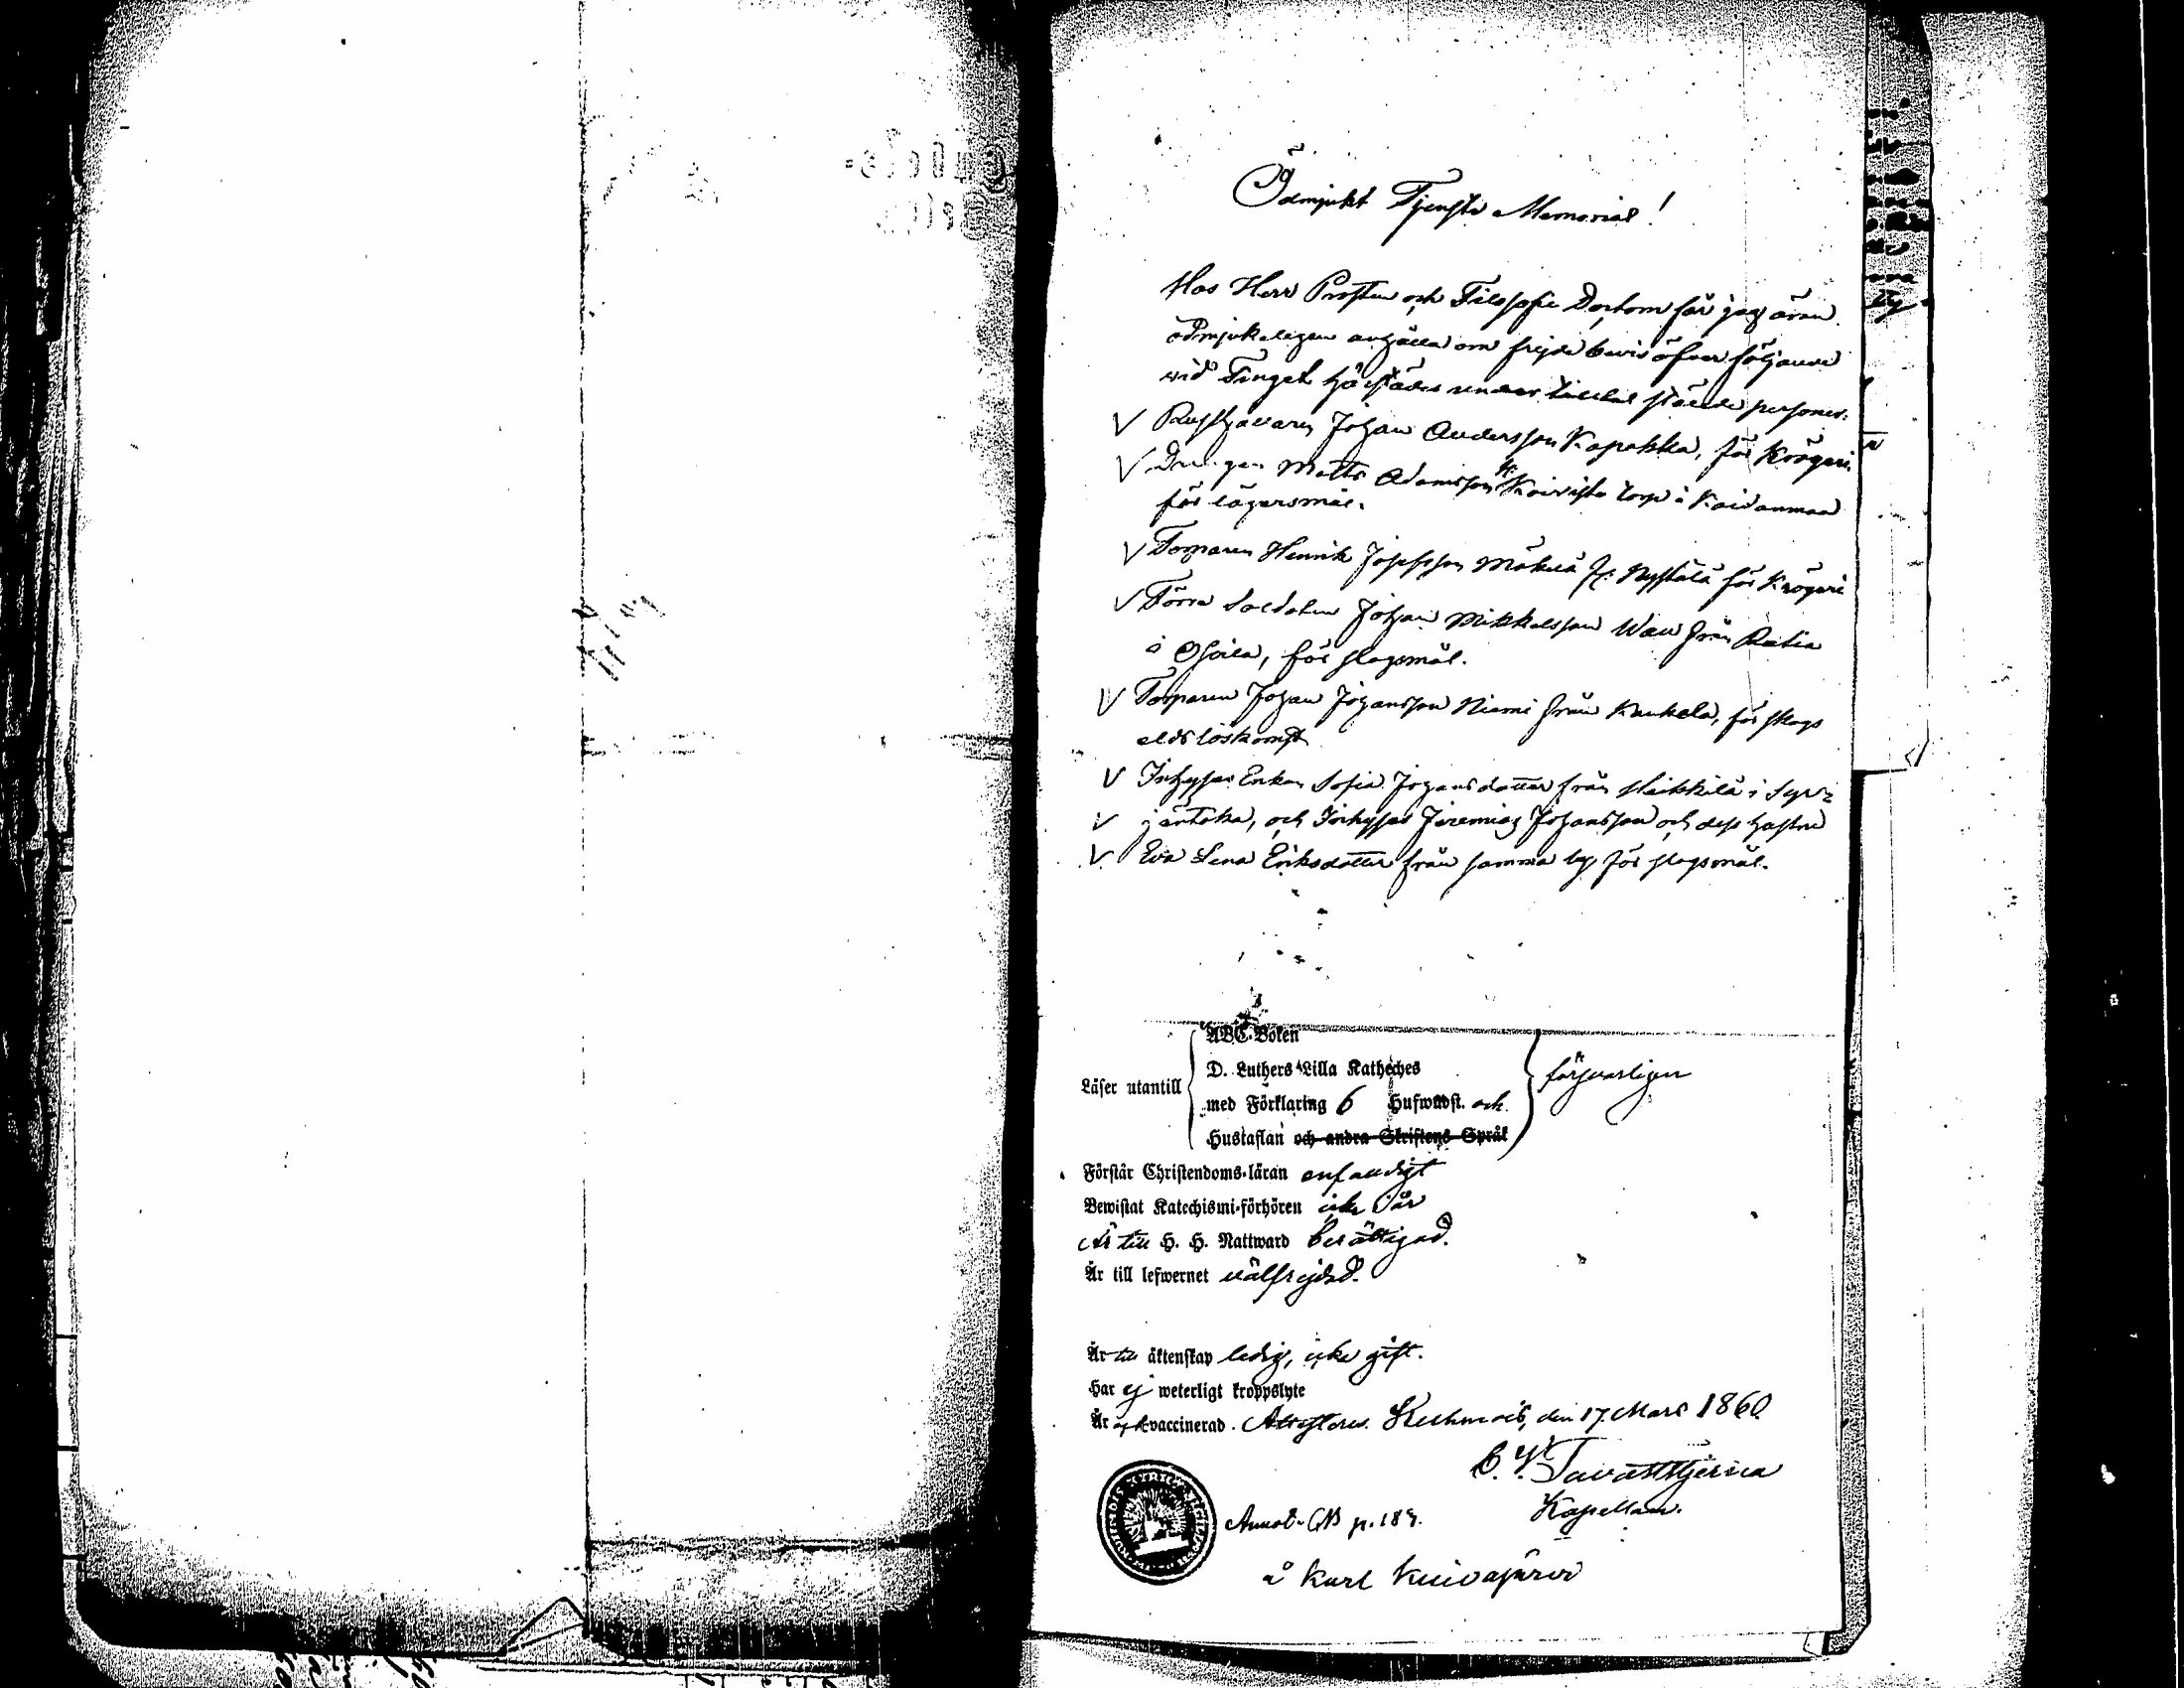 Ödmjukt Tjenste Memorial!
Hos Herr Prosten och Filosofie Doctorn får jag äran
ödmjukeligen anhålla om frejde bevis öfver följande
vid Tinget härstädes under tilltal stående personer:
V Rusthållaren Johan Andersson Kapakka, för krögeri
V Drängen Matts Adamsson Koivisto torp i Kaidanmaa
för lägersmål.
V Torparen Henrik Josefsson Mäkelä fr. Nystälä för Krögeri
V Förre Soldaten Johan Mikkelsson Wall från Ratia
i Ojoila, för slagsmål.
V Torparen Johan Johansson Niemi från Kaukela, för skogs
elds löskomst
V Inhyses Enkan Sofia Johansdotter från Heikkilä i Syr=
V jäntaka, och Inhyses Jeremias Johansson och dess hustru
V Eva Lena Eriksdotter från samma by för slagsmål.
ABC-Boken
D. Luthers Lilla Katheches
Läser utantill
försvarligen
med Förklaring 6 Hufwudst. och
Hustaflan och andra Skriftens Språk
Förstår Christendoms-läran enfaldigt
Bewistat Katechismi-förhören icke i år
Är till H. H. Nattward berättigad.
Är till lefwernet välfrejdad.
Är till äktenskap ledig, icke gift.
Har ej weterligt kroppslyte
Är vaccinerad. Attesteras. Kuhmois, den 17. Mars 1860
Tavaststjerna
Kapellan.
Annot. p. 189.
å Karl Kuivajärvi